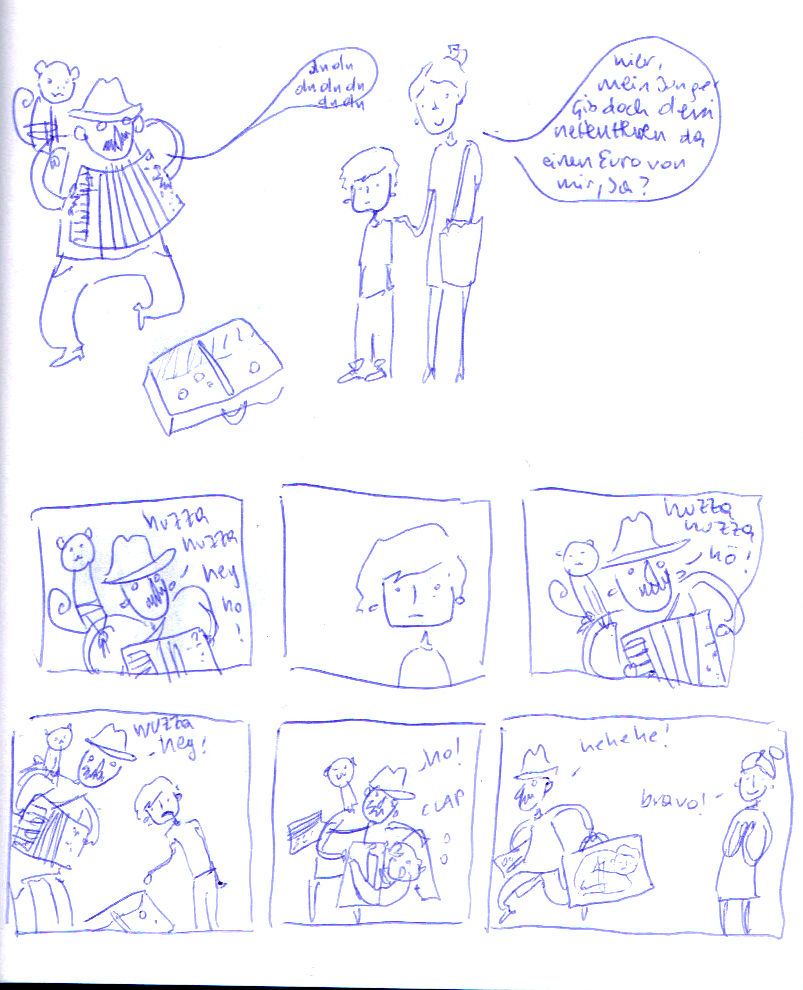 dudu
du du du
du du
hier,
mein Junge
Gib doch dem
netten Herrn da
einen Euro von
mir, Ja?
huzza
huzza
hey
ho
!
huzza
huzza
hö!
wuzza
hey!
ho!
CLAP
hehehe!
bravo!